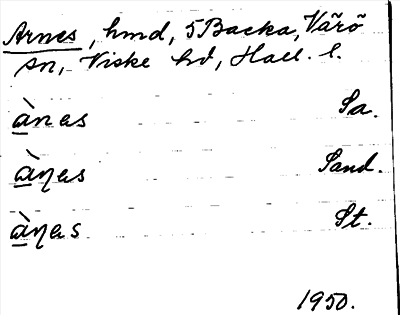 Arnes, hmd, 5 Backa, Värö
sn, Viske hd, Hall. l.
ànas Sa.
àƞas Sand.
àƞas St.
1950.